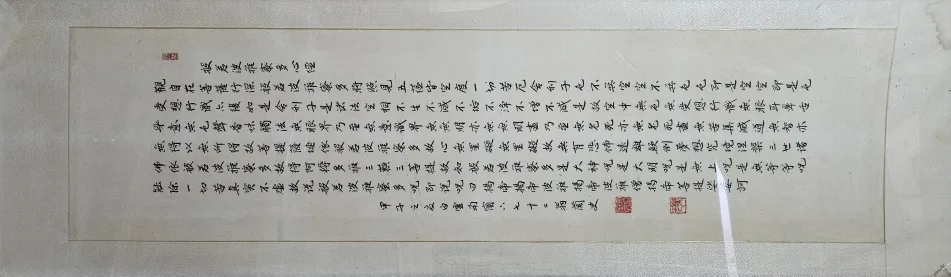 般若波羅蜜多心經
觀自在菩薩行深般若波羅蜜多時照見五蘊皆空度一切苦厄舍利子色不異空空不異色色即是空空即是色
受想行識亦復如是舍利子是諸法空相不生不滅不垢不淨不增不減是故空中無色無受想行識無眼耳鼻舌
身意無色聲香味觸法無眼界乃至無意識界無無明亦無無明盡乃至無老死亦無老死盡無苦集滅道無智亦
無得以無所得故菩提薩埵依般若波羅蜜多故心無罣礙無罣礙故無有恐怖遠離顛倒夢想究竟涅槃三世諸
佛依般若波羅蜜多故得阿耨多羅三藐三菩提故知般若波羅蜜多是大神咒是大明咒是無上咒是無等等咒
能除一切苦真實不虛故說般若波羅蜜多咒即說咒曰揭帝揭帝波羅揭帝波羅僧揭帝菩提薩婆訶
甲子之